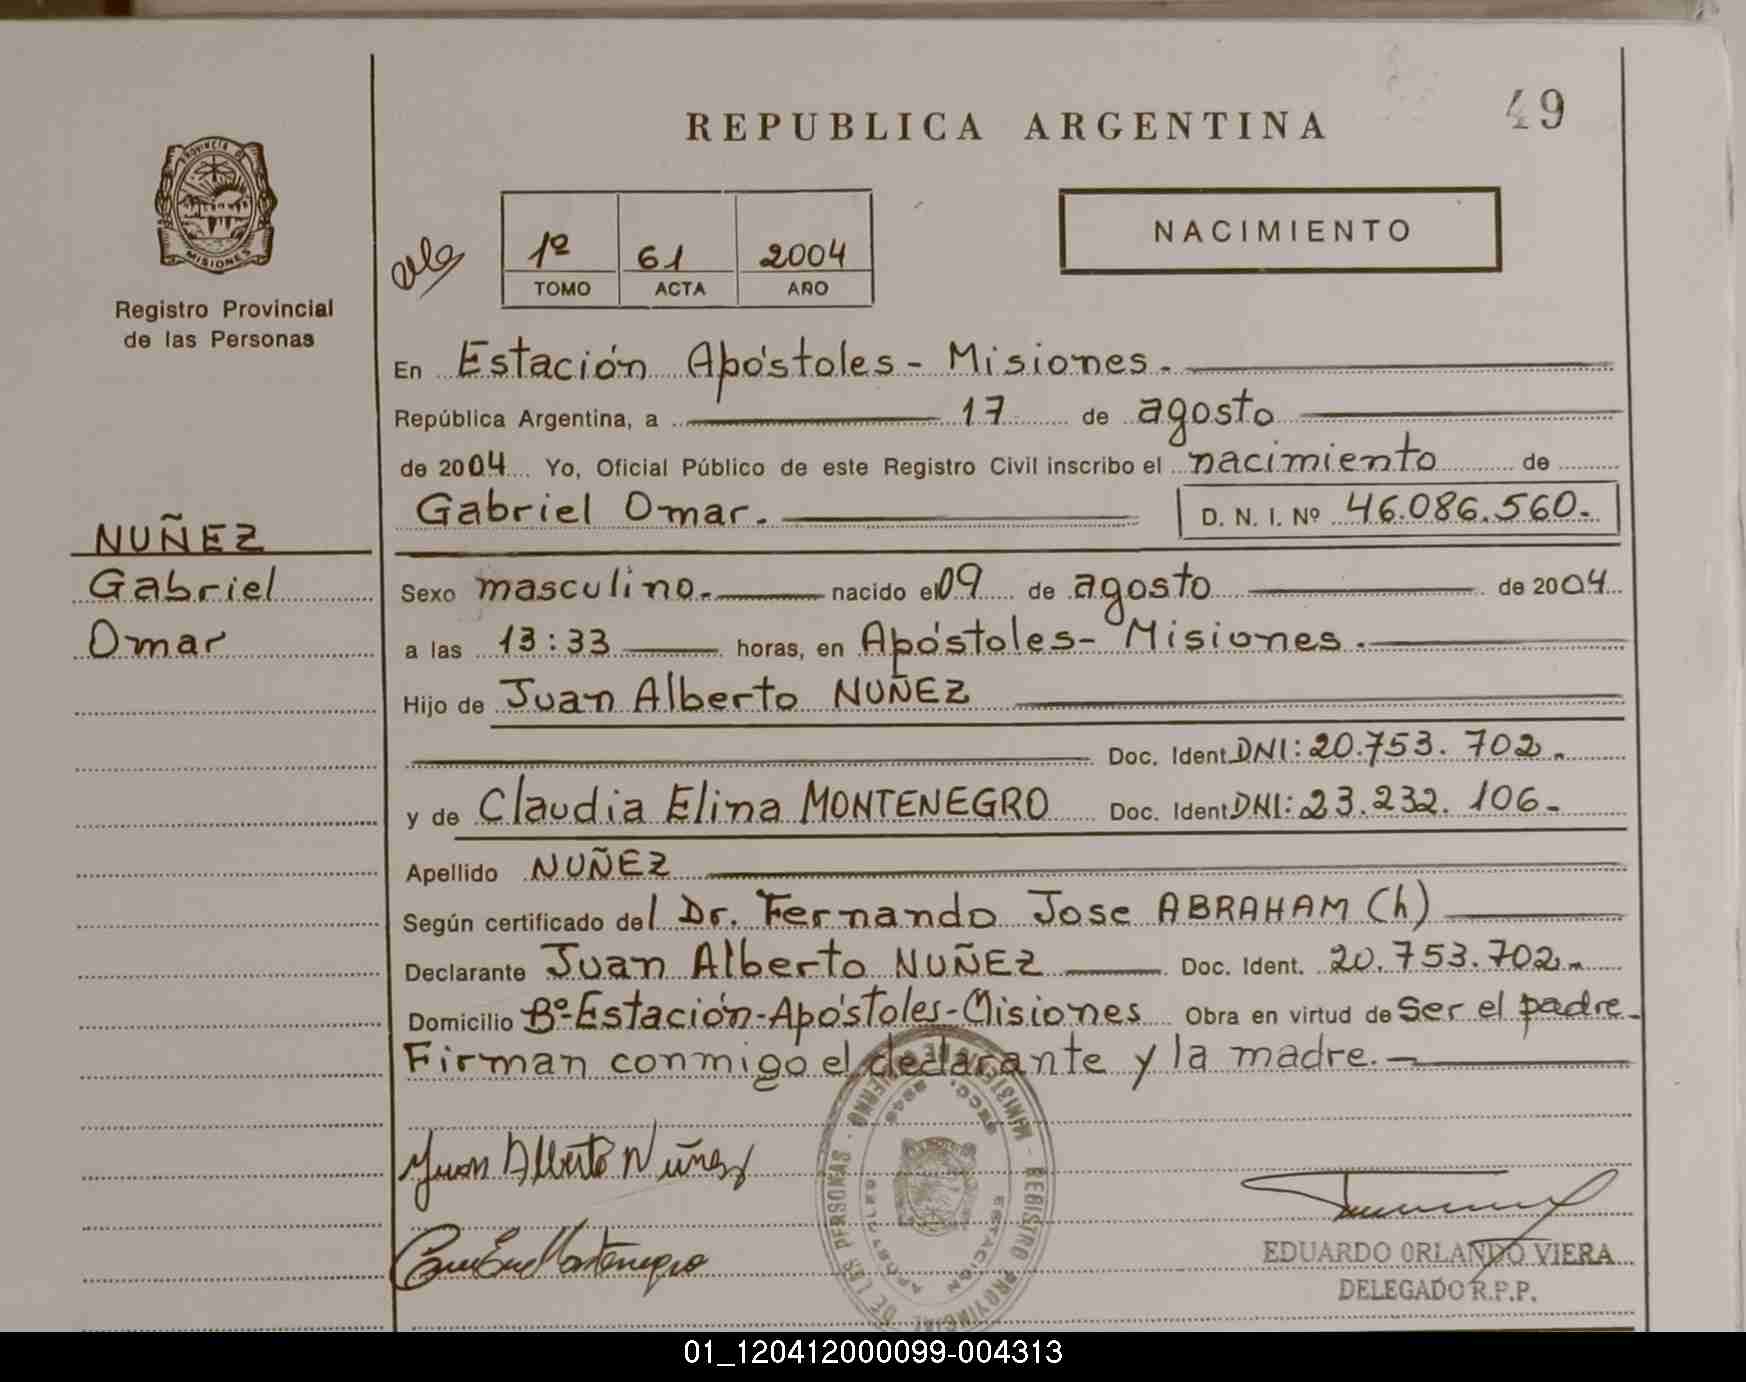 49
REPUBLICA ARGENTINA
PROVINCIA DE
MISIONES
Registro Provincial
de las Personas
1º 61 2004
TOMO ACTA AÑO
NACIMIENTO
En Estación Apóstoles - Misiones.
República Argentina, a 17 de agosto
de 2004 Yo, Oficial Público de este Registro Civil inscribo el nacimiento de
Gabriel Omar. D. N. I. Nº 46.086.560.
NUÑEZ
Gabriel
Omar
Sexo masculino. nacido el 09 de agosto de 2004
a las 13:33 horas, en Apóstoles - Misiones.
Hijo de Juan Alberto NUÑEZ
Doc. Ident. DNI: 20.753.702.
y de Claudia Elina MONTENEGRO Doc. Ident. DNI: 23.232.106.
Apellido NUÑEZ
Según certificado del Dr. Fernando Jose ABRAHAM (h)
Declarante Juan Alberto NUÑEZ Doc. Ident. 20.753.702.
Domicilio Bº Estación - Apóstoles - Misiones Obra en virtud de ser el padre.
Firman conmigo el declarante y la madre.
Juan Alberto Nuñez
Montenegro
REGISTRO PROVINCIAL DE LAS PERSONAS
ESTACION APOSTOLES
EDUARDO ORLANDO VIERA
DELEGADO R.P.P.
01_120412000099-004313